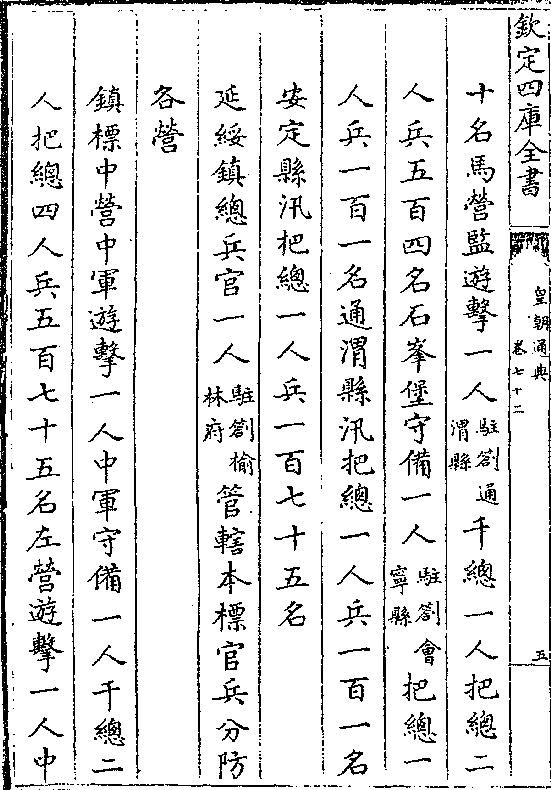 欽定四庫全書
皇朝通典
卷七十二
五
十名馬營監遊擊一人駐劄通渭縣千總一人把總二
人兵五百四名石峯堡守備一人駐劄會寧縣把總一
人兵一百一名通渭縣汛把總一人兵一百一名
安定縣汛把總一人兵一百七十五名
延綏鎮總兵官一人駐劄榆林府管轄本標官兵分防
各營
鎮標中營中軍遊擊一人中軍守備一人千總二
人把總四人兵五百七十五名左營遊擊一人中